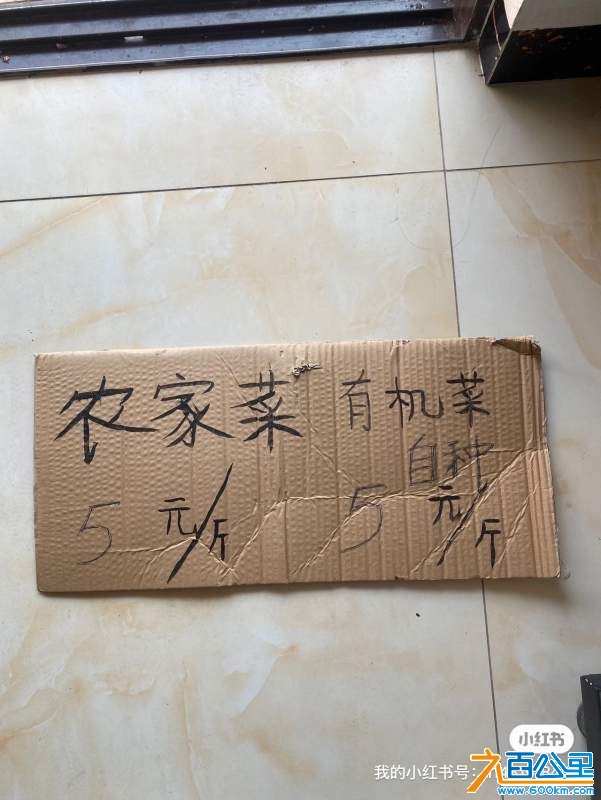 农家菜 有机菜
自种
5元/斤 5元/斤
小红书
我的小红书号:
六百公里
www.600km.com